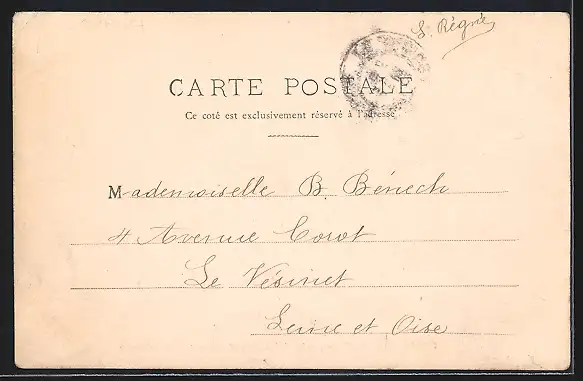 S. Régnié
CARTE POSTALE
Ce coté est exclusivement réservé à l'adresse
Mademoiselle B. Bénech
4 Avenue Corot
Le Vésinet
Seine et Oise